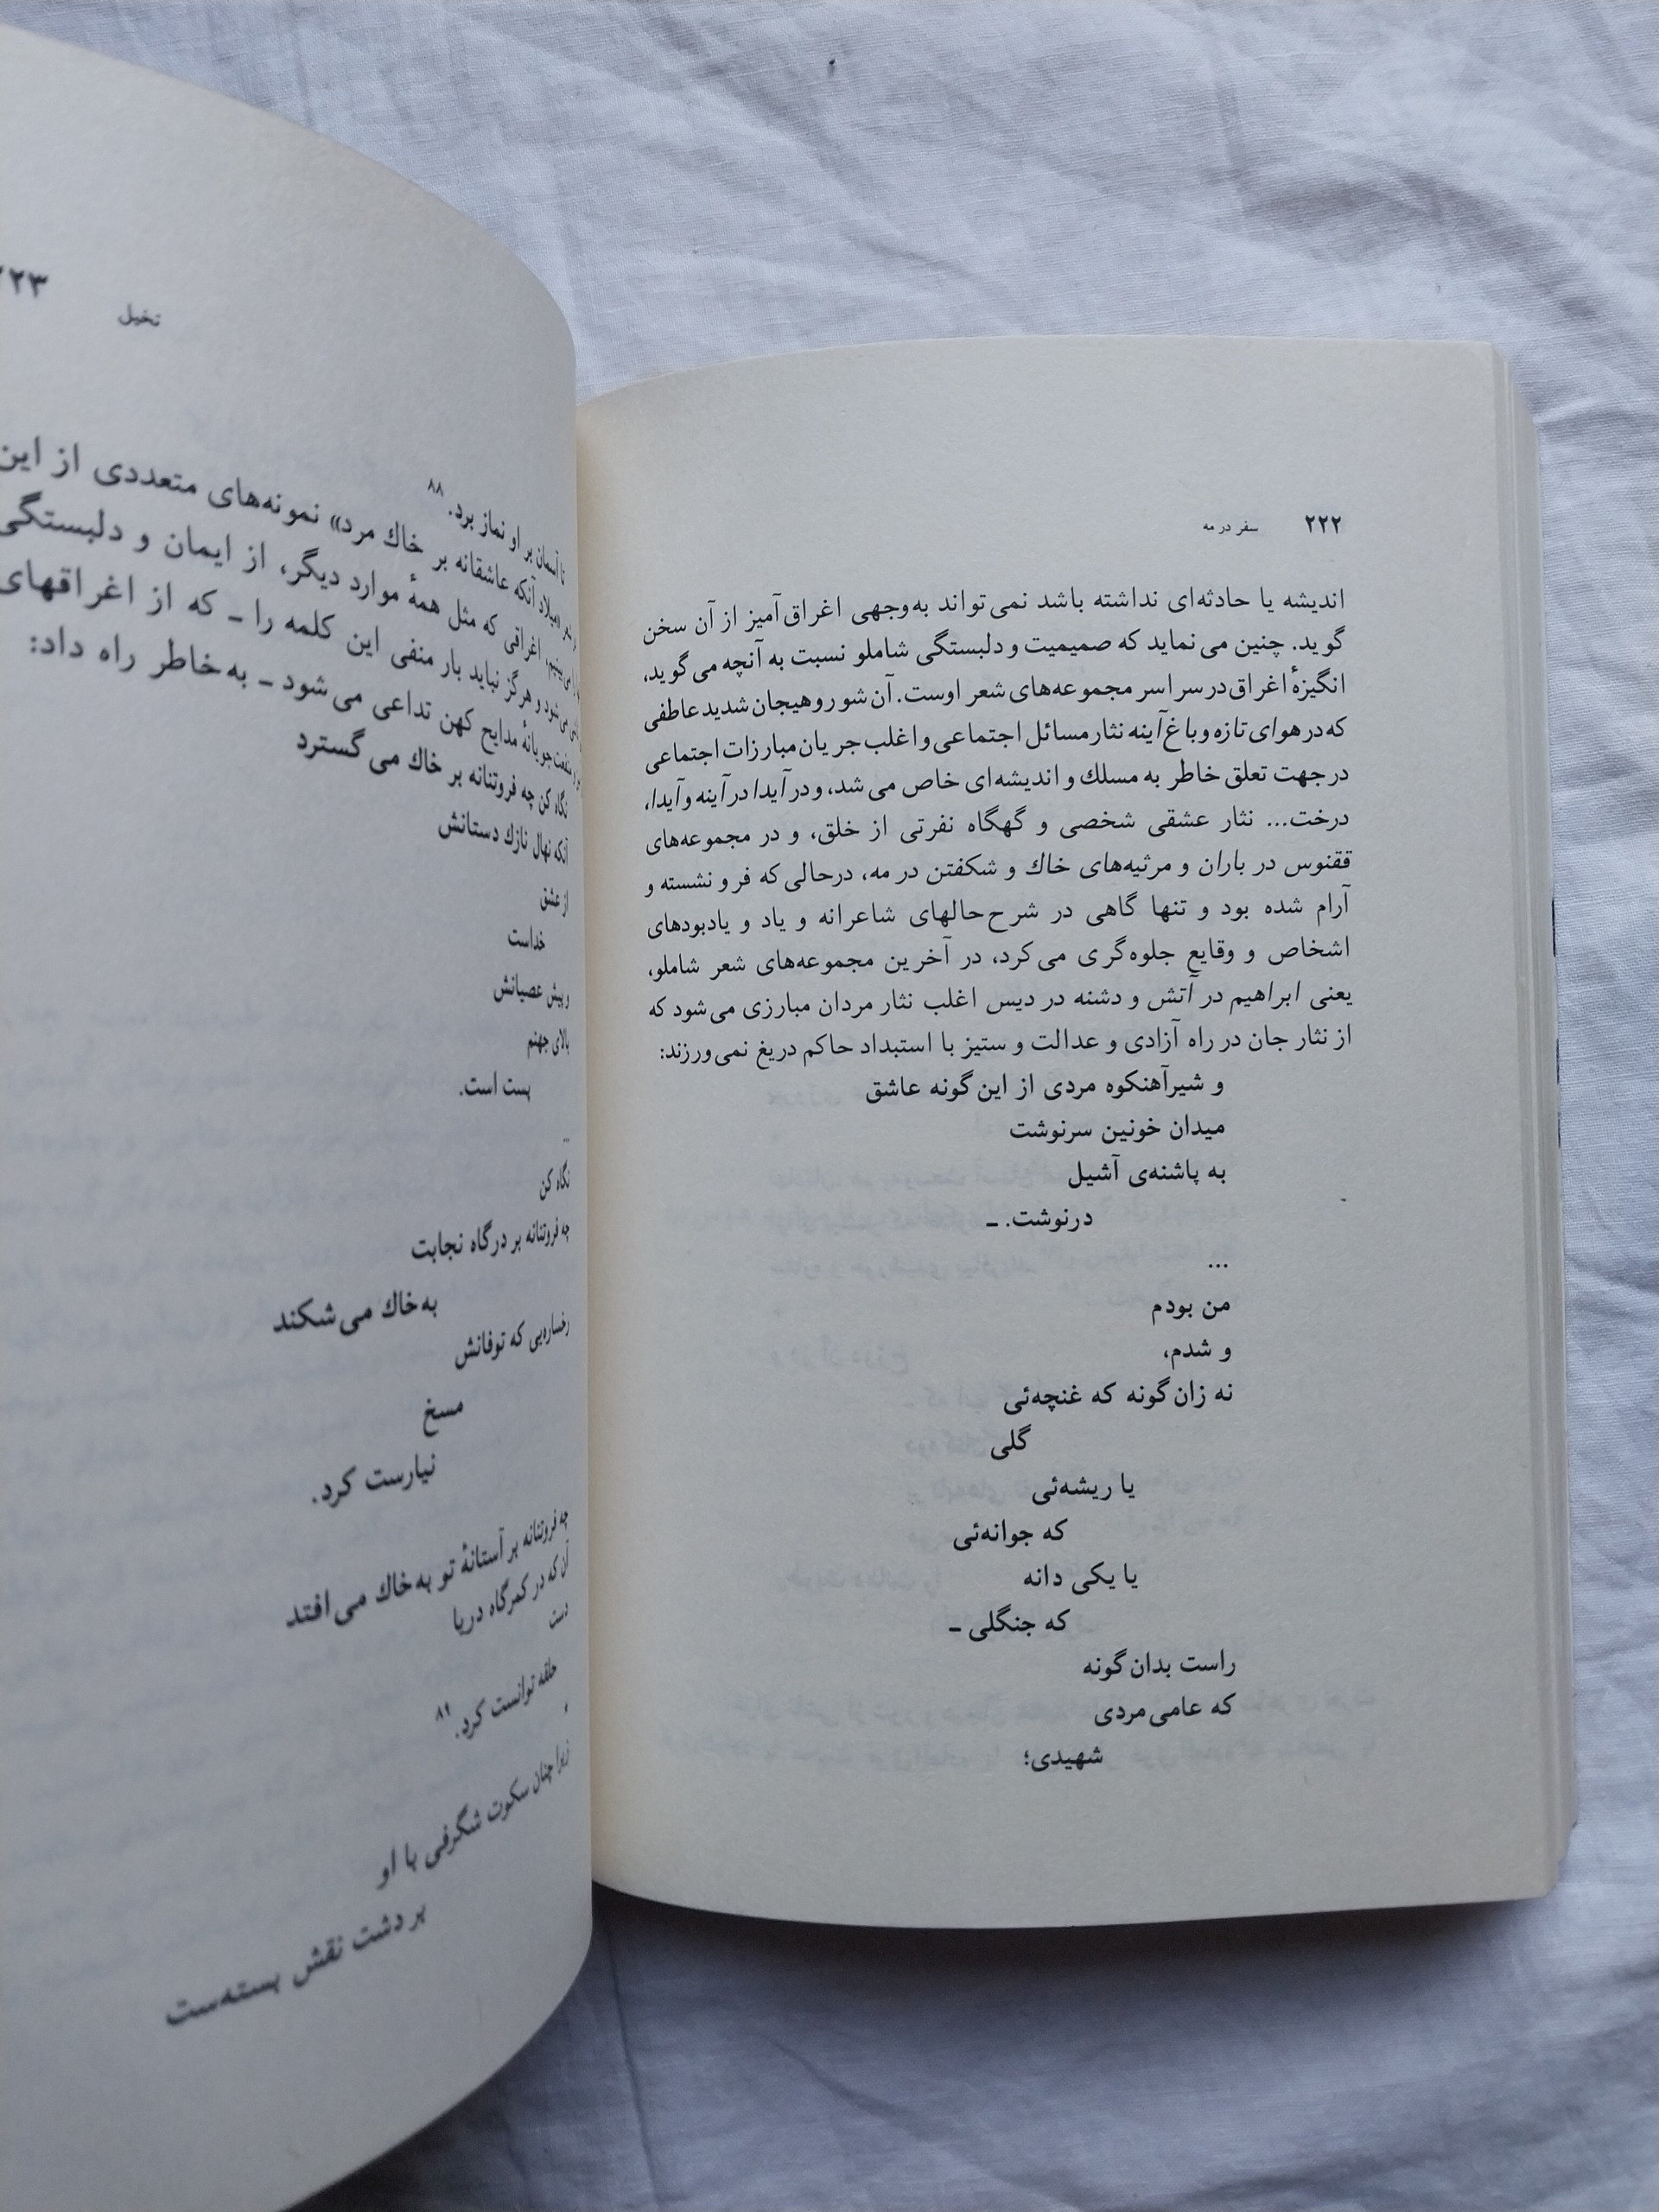 ۲۲۲ سفر در مه
اندیشه یا حادثه‌ای نداشته باشد نمی‌تواند به‌وجهی اغراق‌آمیز از آن سخن
گوید. چنین می‌نماید که صمیمیت و دلبستگی شاملو نسبت به آنچه می‌گوید،
انگیزهٔ اغراق در سراسر مجموعه‌های شعر اوست. آن شور و هیجان شدید عاطفی
که در هوای تازه و باغ آینه نثار مسائل اجتماعی و اغلب جریان مبارزات اجتماعی
در جهت تعلق خاطر به مسلك و اندیشه‌ای خاص می‌شد، و در آیدا در آینه و آیدا،
درخت... نثار عشقی شخصی و گهگاه نفرتی از خلق، و در مجموعه‌های
ققنوس در باران و مرثیه‌های خاك و شکفتن در مه، درحالی که فرو نشسته و
آرام شده بود و تنها گاهی در شرح‌حالهای شاعرانه و یاد و یادبودهای
اشخاص و وقایع جلوه‌گری می‌کرد، در آخرین مجموعه‌های شعر شاملو،
یعنی ابراهیم در آتش و دشنه در دیس اغلب نثار مردان مبارزی می‌شود که
از نثار جان در راه آزادی و عدالت و ستیز با استبداد حاکم دریغ نمی‌ورزند:
و شیرآهنکوه مردی از این گونه عاشق
میدان خونین سرنوشت
به پاشنه‌ی آشیل
درنوشت. ــ
...
من بودم
و شدم،
نه زان گونه که غنچه‌ئی
گلی
یا ریشه‌ئی
که جوانه‌ئی
یا یکی دانه
که جنگلی ــ
راست بدان گونه
که عامی مردی
شهیدی؛
تخیل ۲۲۳
تا آسمان بر او نماز برد.۸۸
میلاد آنکه عاشقانه بر خاك مرد» نمونه‌های متعددی از این
اغراقی که مثل همهٔ موارد دیگر، از ایمان و دلبستگی
می‌شود و هرگز نباید بار منفی این کلمه را ــ که از اغراقهای
منفعت‌جویانهٔ مدایح کهن تداعی می‌شود ــ به‌خاطر راه داد:
نگاه کن چه فروتنانه بر خاك می‌گسترد
آنکه نهال نازك دستانش
از عشق
خداست
و پیش عصیانش
بالای جهنم
پست است.
...
نگاه کن
چه فروتنانه بر درگاه نجابت
به‌خاك می‌شکند
رخساره‌یی که توفانش
مسخ
نیارست کرد.
چه فروتنانه بر آستانهٔ تو به‌خاك می‌افتد
آن که در کمرگاه دریا
دست
حلقه توانست کرد.۸۹
زیرا چنان سکوت شگرفی با او
بر دشت نقش بسته‌ست